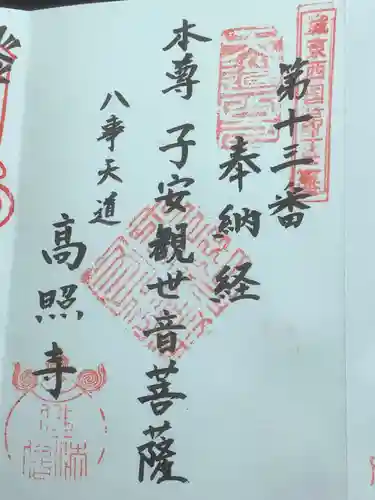 第十三番
奉納経
本尊 子安観世音菩薩
八事天道
高照寺